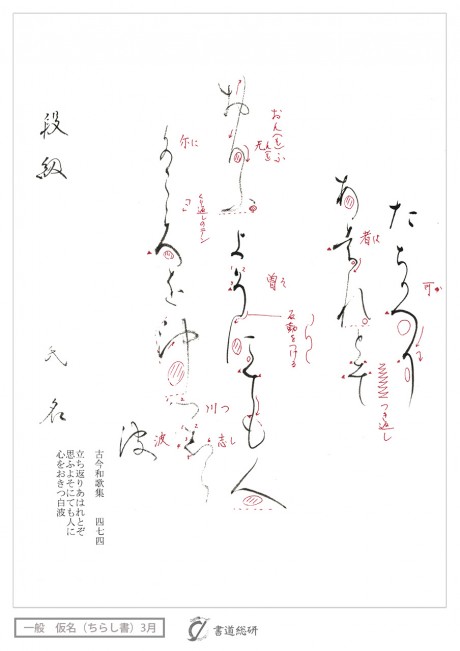 たち可へり
可か
つき返し
あ者れとそ
者は
おもふよ曽にても人
曽そ
反動をつける
尓こゝろを沖川志ら
尓に
くり返しのテン
川つ
志し
波
波
段級 氏名
古今和歌集 四七四
立ち返りあはれとぞ
思ふよそにても人に
心をおきつ白波
一般 仮名（ちらし書）3月
書道総研